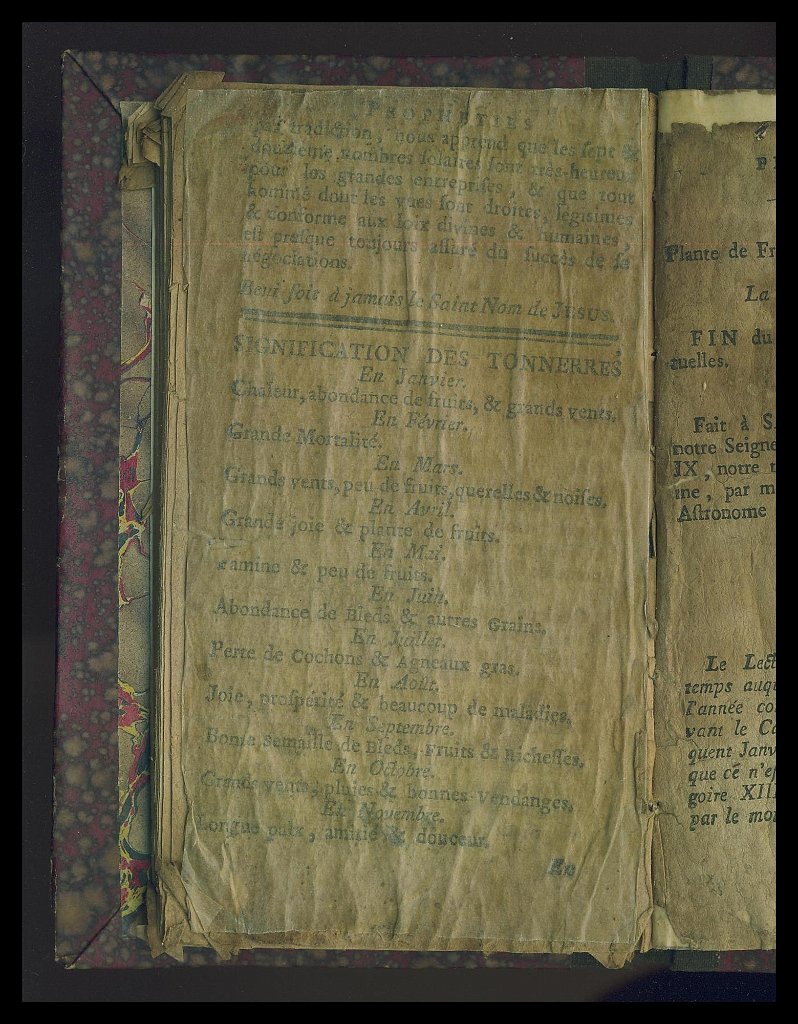 PROPHÉTIES
par tradition, nous apprend que les sept &
douzieme nombres solaires sont très-heureux
pour les grandes entreprises, & que tout
homme dont les vues sont droites, légitimes
& conforme aux loix divines & humaines,
est presque toujours assuré du succès de ses
négociations.
Beni soit à jamais le Saint Nom de JESUS.
SIGNIFICATION DES TONNERRES
En Janvier.
Chaleur, abondance de fruits, & grands vents.
En Février.
Grande Mortalité.
En Mars.
Grands vents, peu de fruits, querelles & noises.
En Avril.
Grande joie & plante de fruits.
En Mai.
Famine & peu de fruits.
En Juin.
Abondance de Bleds & autres Grains.
En Juillet.
Perte de Cochons & Agneaux gras.
En Août.
Joie, prospérité & beaucoup de maladies.
En Septembre.
Bonne semaille de Bleds, Fruits & Richesses.
En Octobre.
Grands vents, pluies & bonnes Vendanges.
En Novembre.
Longue paix, amitié & douceur.
En
P
Plante de Fr
La
FIN du
tuelles.
Fait à S
notre Seigne
IX, notre t
ine, par m
Astronome
Le Lect
temps auqu
l'année co
vant le Ca
quent Janv
que ce n'es
goire XIII
par le mo